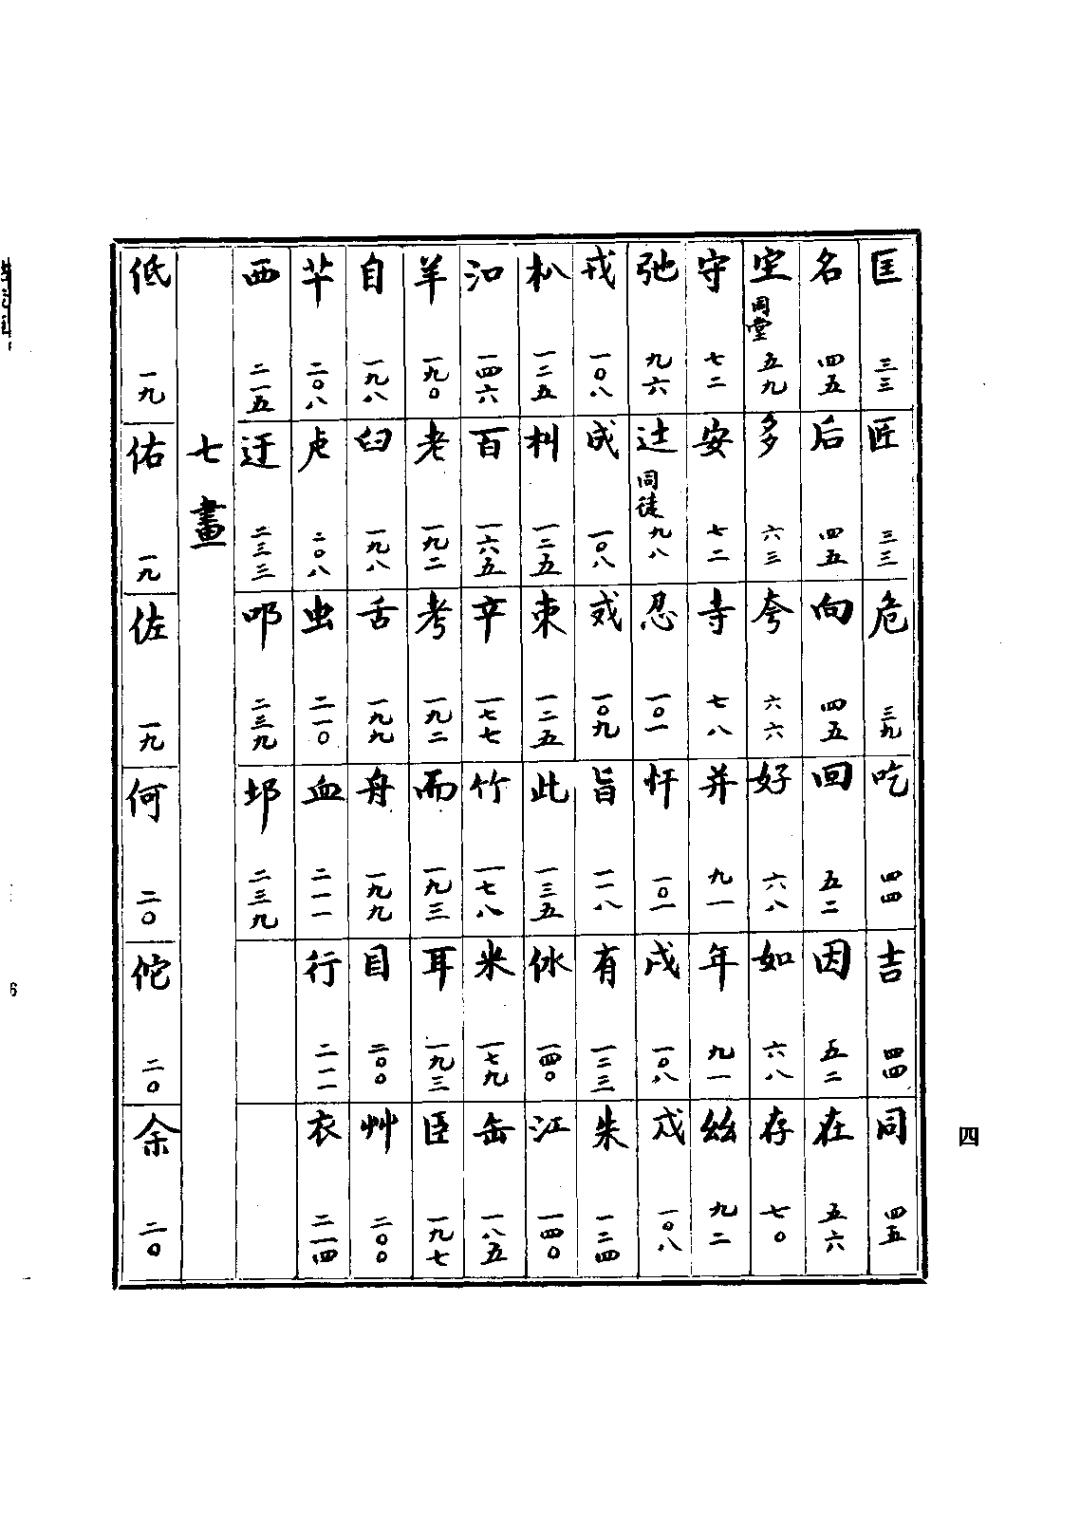 匡 三三
匠 三三
危 三九
吃 四四
吉 四四
同 四五
名 四五
后 四五
向 四五
回 五二
因 五二
在 五六
坣 同堂 五九
多 六三
夸 六六
好 六八
如 六八
存 七〇
守 七二
安 七二
寺 七八
并 九一
年 九一
丝 九二
弛 九六
辻 同徒 九八
忍 一〇一
忓 一〇一
戌 一〇八
戍 一〇八
戎 一〇八
成 一〇八
戓 一〇九
旨 一一八
有 一三三
朱 一二四
朳 一二五
朻 一二五
朿 一二五
此 一三五
㲻 一四〇
江 一四〇
汩 一四六
百 一六五
辛 一七七
竹 一七八
米 一七九
缶 一八五
羊 一九〇
老 一九二
考 一九二
而 一九三
耳 一九三
臣 一九七
自 一九八
臼 一九八
舌 一九九
舟 一九九
目 二〇〇
艸 二〇〇
芈 二〇八
虍 二〇八
虫 二一〇
血 二一一
行 二一一
衣 二一四
西 二一五
迂 二三三
邛 二三九
邔 二三九
七畫
低 一九
佑 一九
佐 一九
何 二〇
佗 二〇
余 二〇
四
6